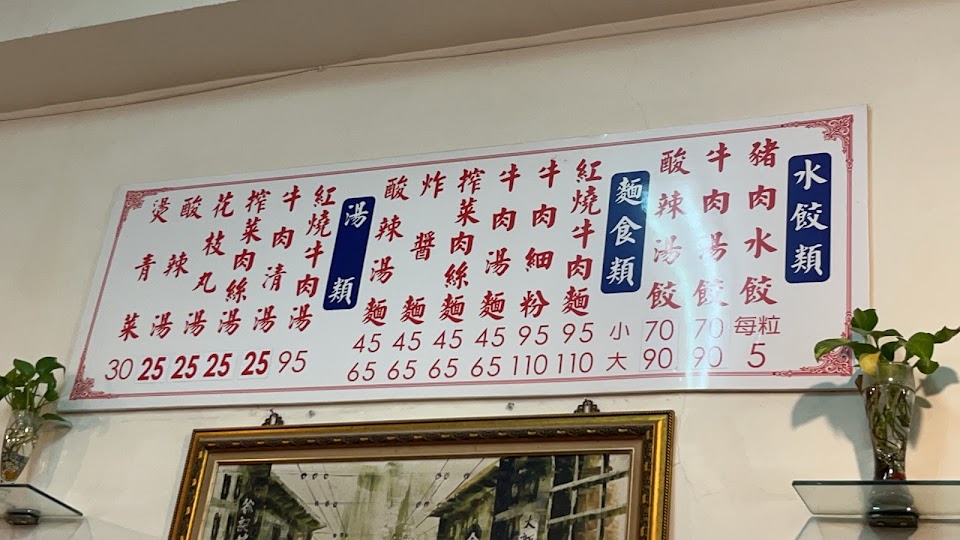 水餃類
豬肉水餃 每粒 5
牛肉湯餃 70 90
酸辣湯餃 70 90
麵食類
小 大
紅燒牛肉麵 95 110
牛肉細粉 95 110
牛肉湯麵 45 65
榨菜肉絲麵 45 65
炸醬麵 45 65
酸辣湯麵 45 65
湯類
紅燒牛肉湯 95
牛肉清湯 25
榨菜肉絲湯 25
花枝丸湯 25
酸辣湯 25
燙青菜 30